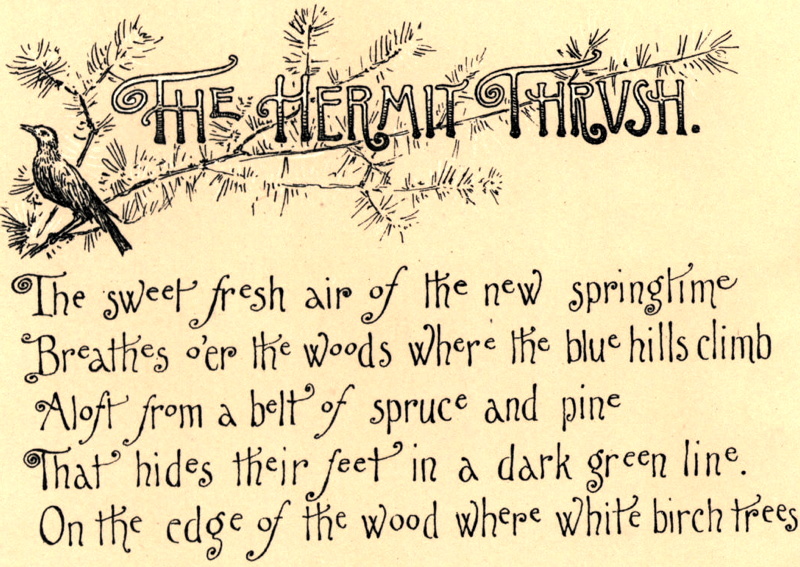 THE HERMIT THRVSH.
The sweet fresh air of the new springtime
Breathes o'er the woods where the blue hills climb
Aloft from a belt of spruce and pine
That hides their feet in a dark green line.
On the edge of the wood where white birch trees